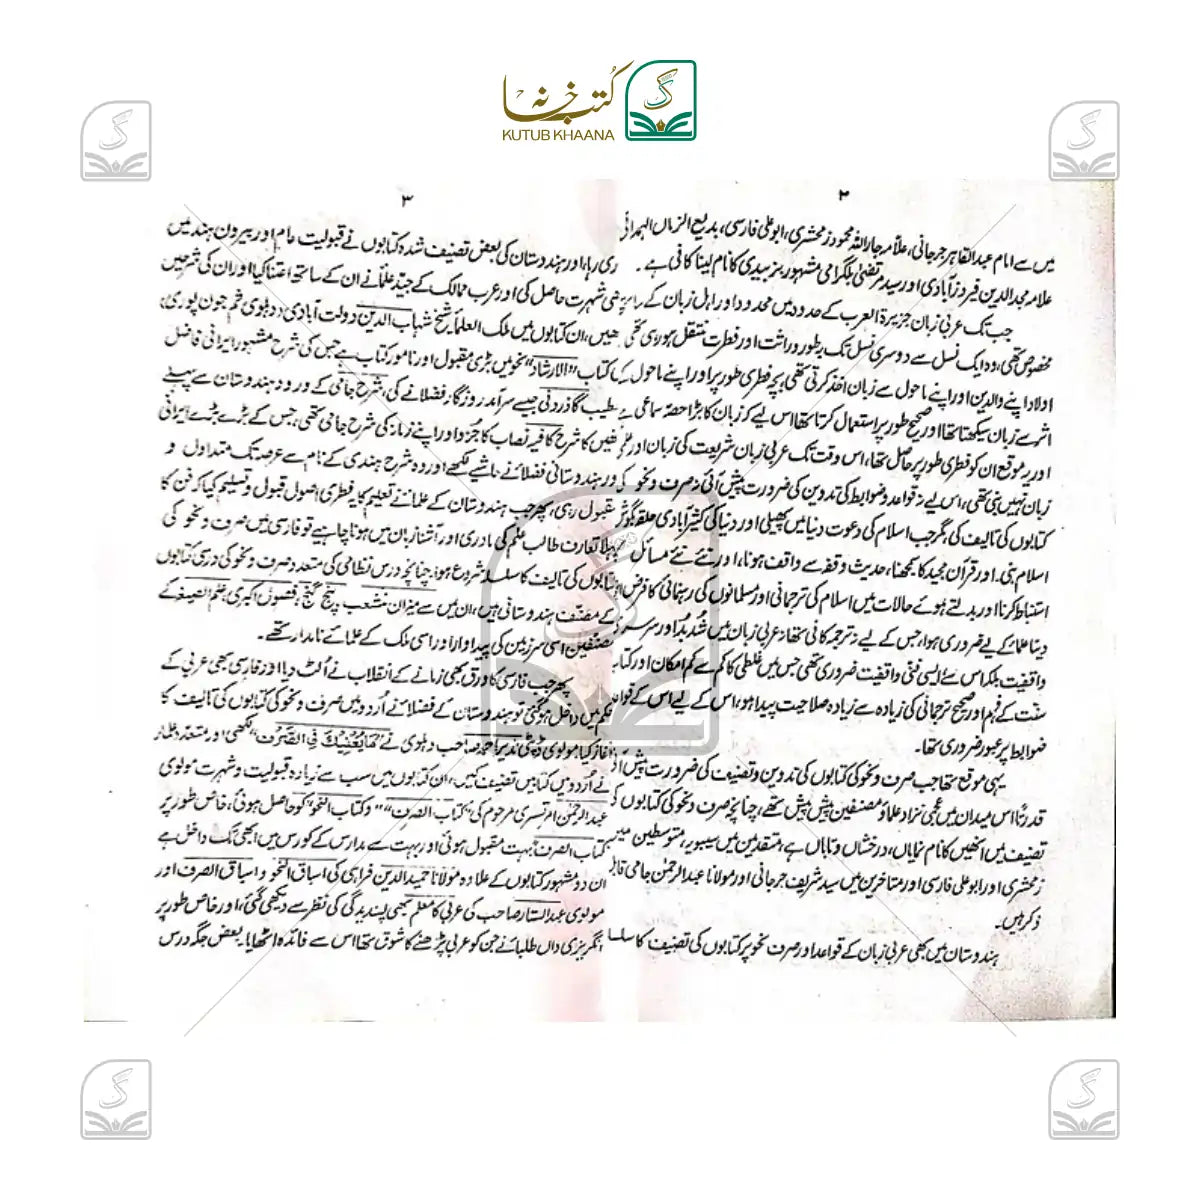 کتب خانہ
KUTUB KHAANA
۲
میں سے امام عبدالقاہر جرجانی، علامہ جاراللہ محمود زمخشری، ابو علی فارسی، بدیع الزماں الہمدانی
علامہ مجدالدین فیروزآبادی اور سید مرتضیٰ بلگرامی مشہور بزبیدی کا نام لینا کافی ہے۔
جب تک عربی زبان جزیرۃ العرب کے حدود میں محدود اور اہل زبان کے
مخصوص تھی، وہ ایک نسل سے دوسری نسل تک بطور وراثت اور فطرت منتقل ہو رہی تھی
اولاد اپنے والدین اور اپنے ماحول سے زبان اخذ کرتی تھی، بچہ فطری طور پر اور اپنے ماحول کے
اثر سے زبان سیکھتا تھا اور صحیح طور پر استعمال کرتا تھا اس لیے کہ زبان کا بڑا حصہ سماعی ہے
اور یہ موقع ان کو فطری طور پر حاصل تھا، اس وقت تک عربی زبان شریعت کی زبان اور
زبان نہیں بنی تھی، اس لیے نہ قواعد و ضوابط کی تدوین کی ضرورت پیش آئی نہ صرف و نحو کی
کتابوں کی تالیف کی، مگر جب اسلام کی دعوت دنیا میں پھیلی اور دنیا کی کثیر آبادی حلقہ بگوش
اسلام بنی۔ اور قرآن مجید کا سمجھنا، حدیث و فقہ سے واقف ہونا، اور نئے نئے مسائل
استنباط کرنا اور بدلتے ہوئے حالات میں اسلام کی ترجمانی اور مسلمانوں کی رہنمائی کا فرض
دینا علما کے لیے ضروری ہوا، جس کے لیے نہ ترجمہ کافی تھا نہ عربی زبان میں شُد بُد اور سرسری
واقفیت بلکہ اس کے لئے ایسی فنی واقفیت ضروری تھی جس میں غلطی کا کم سے کم امکان اور کتاب
سنت کے فہم اور صحیح ترجمانی کی زیادہ سے زیادہ صلاحیت پیدا ہو، اس کے لیے اس کے قواعد
ضوابط پر عبور ضروری تھا۔
یہی موقع تھا جب صرف و نحو کی کتابوں کی تدوین و تصنیف کی ضرورت پیش آئی
قدرتاً اس میدان میں عجمی نژاد علما و مصنفین پیش پیش تھے، چنانچہ صرف و نحو کی کتابوں کی
تصنیف میں انھیں کا نام نمایاں، درخشاں و تاباں ہے، متقدمین میں سیبویہ، متوسطین میں
زمخشری اور ابو علی فارسی اور متاخرین میں سید شریف جرجانی اور مولانا عبدالرحمٰن جامی قابل
ذکر ہیں۔
ہندوستان میں بھی عربی زبان کے قواعد اور صرف نحو پر کتابوں کی تصنیف کا سلسلہ
۳
ری رہا، اور ہندوستان کی بعض تصنیف شدہ کتابوں نے قبولیت عام اور بیرون ہند میں
شہرت حاصل کی اور عرب ممالک کے جیّد علما نے ان کے ساتھ اعتنا کیا اور ان کی شرحیں
ھیں، ان کتابوں میں ملک العلماء شیخ شہاب الدین دولت آبادی دہلوی ثم جون پوری،
کتاب "الارشاد" نحو میں بڑی مقبول اور نامور کتاب ہے جس کی شرح مشہور ایرانی فاضل
خطیب گاذرونی جیسے سرآمد روزگار فضلا نے کی، شرح جامی کے ورود ہندوستان سے پہلے
کا شرح کافیہ نصاب کا جُز و اور اپنے زمانہ کی شرح جامی تھی، جس کے بڑے بڑے ایرانی
ور ہندوستانی فضلا نے حاشیے لکھے اور وہ شرح ہندی کے نام سے عرصہ تک متداول و
مقبول رہی، پھر جب ہندوستان کے علما نے تعلیم کا یہ فطری اصول قبول و تسلیم کیا کہ فن کا
پہلا تعارف طالب علم کی مادری اور آشنا زبان میں ہونا چاہیے تو فارسی میں صرف و نحو کی
کتابوں کی تالیف کا سلسلہ شروع ہوا، چنانچہ درس نظامی کی متعدد صرف و نحو کی درسی کتابوں
کے مصنف ہندوستانی ہیں، ان میں سے میزان منشعب، پنج گنج، فصول اکبری، علم الصیغہ کے
مصنفین اسی سرزمین کی پیداوار اور اسی ملک کے علمائے نامدار تھے۔
پھر جب فارسی کا ورق بھی زمانے کے انقلاب نے اُلٹ دیا اور فارسی بھی عربی کے
حکم میں داخل ہوگئی تو ہندوستان کے فضلا نے اُردو میں صرف و نحو کی کتابوں کی تالیف کا
آغاز کیا مولوی ڈپٹی نذیر احمد صاحب دہلوی نے "مَا یُغْنِیْكَ فِی الصَّرْفِ" لکھی اور متعدد علمار
نے اُردو میں کتابیں تصنیف کیں، ان کتابوں میں سب سے زیادہ قبولیت و شہرت مولوی
عبدالرحمٰن امرتسری مرحوم کی "کتاب الصرف" "و کتاب النحو" کو حاصل ہوئی، خاص طور پر
کتاب الصرف بہت مقبول ہوئی اور بہت سے مدارس کے کورس میں ابھی تک داخل ہے
ان دو مشہور کتابوں کے علاوہ مولانا حمید الدین فراہی کی اسباق النحو و اسباق الصرف اور
مولوی عبدالستار صاحب کی عربی کا معلم بھی پسندیدگی کی نظر سے دیکھی گئی، اور خاص طور پر
انگریزی داں طلبا نے جن کو عربی پڑھنے کا شوق تھا اس سے فائدہ اٹھایا۔ بعض جگہ درس